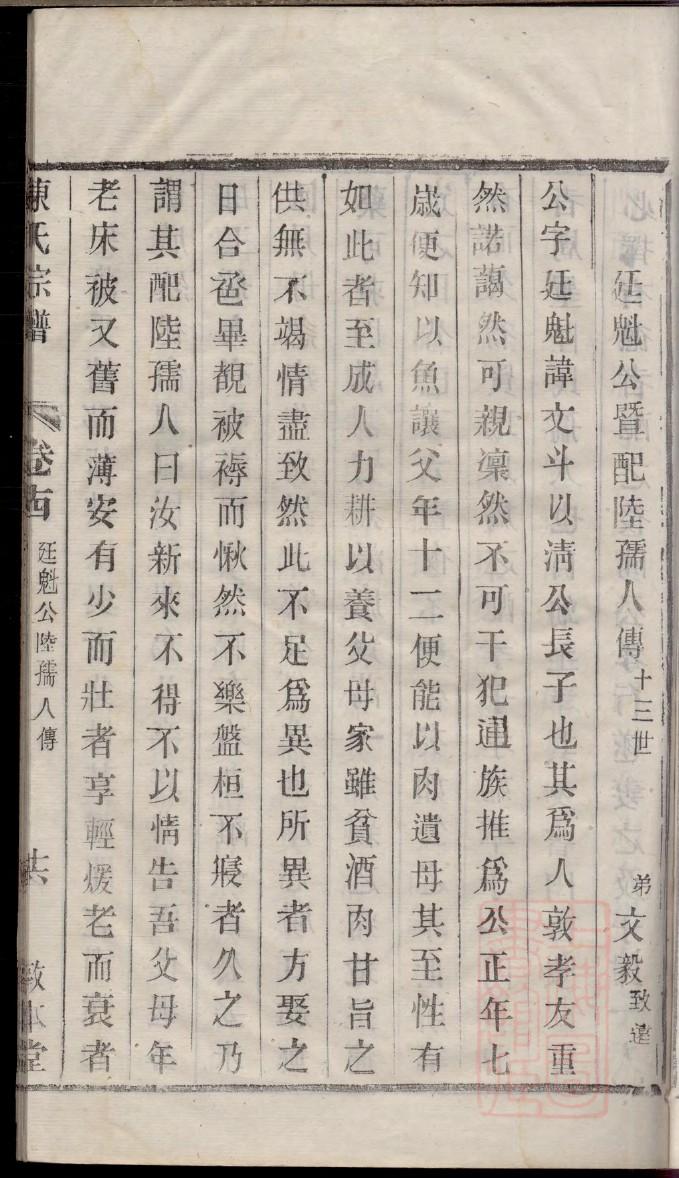 廷魁公暨配陸孺人傳 十三世 弟文毅致遠
公字廷魁諱文斗以淸公長子也其爲人敦孝友重
然諾藹然可親凛然不可干犯通族推爲公正年七
歲便知以魚讓父年十二便能以肉遺母其至性有
如此者至成人力耕以養父母家雖貧酒肉甘旨之
供無不竭情盡致然此不足爲異也所異者方娶之
日合卺畢覩被褥而愀然不樂盤桓不寢者久之乃
謂其配陸孺人曰汝新來不得不以情告吾父母年
老床被又舊而薄安有少而壯者享輕煖老而衰者
陳氏宗譜 卷十四 廷魁公陸孺人傳 共 敦本堂